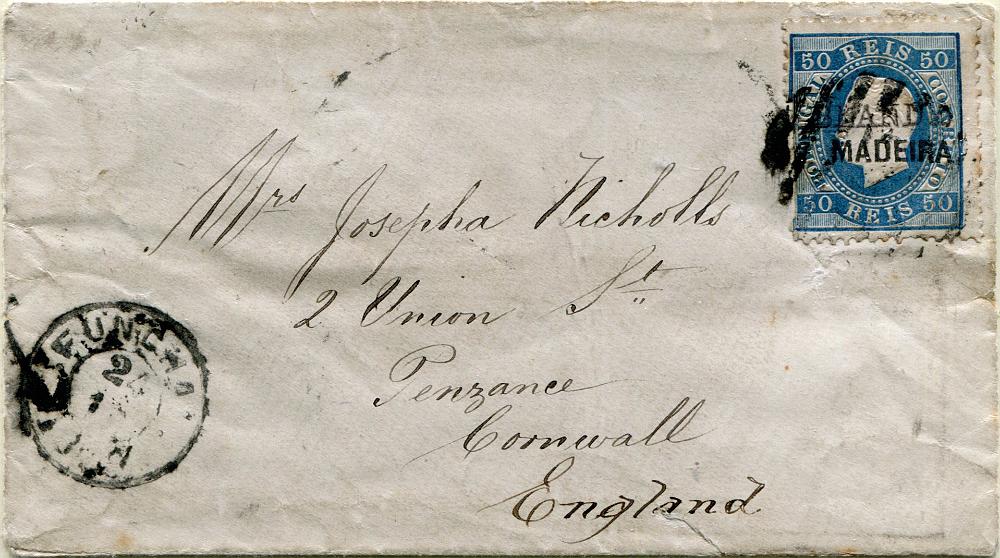 50 REIS 50
PORTUGAL
CORREIO
BLANDY
MADEIRA
50 REIS 50
Mrs Josepha Nicholls
2 Union St
Penzance
Cornwall
England
FUNCHAL